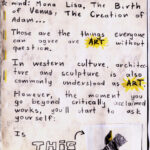 mind: Mona Lisa, The Birth
of Venus, The Creation of
Adam...
Those are the things everyone
can agree are ART without
question.
In western culture, architec-
ture and sculpture is also
commonly understood as ART.
However, the moment you
go beyond critically acclaimed
works, you'll start to ask
your self:
Is
THIS